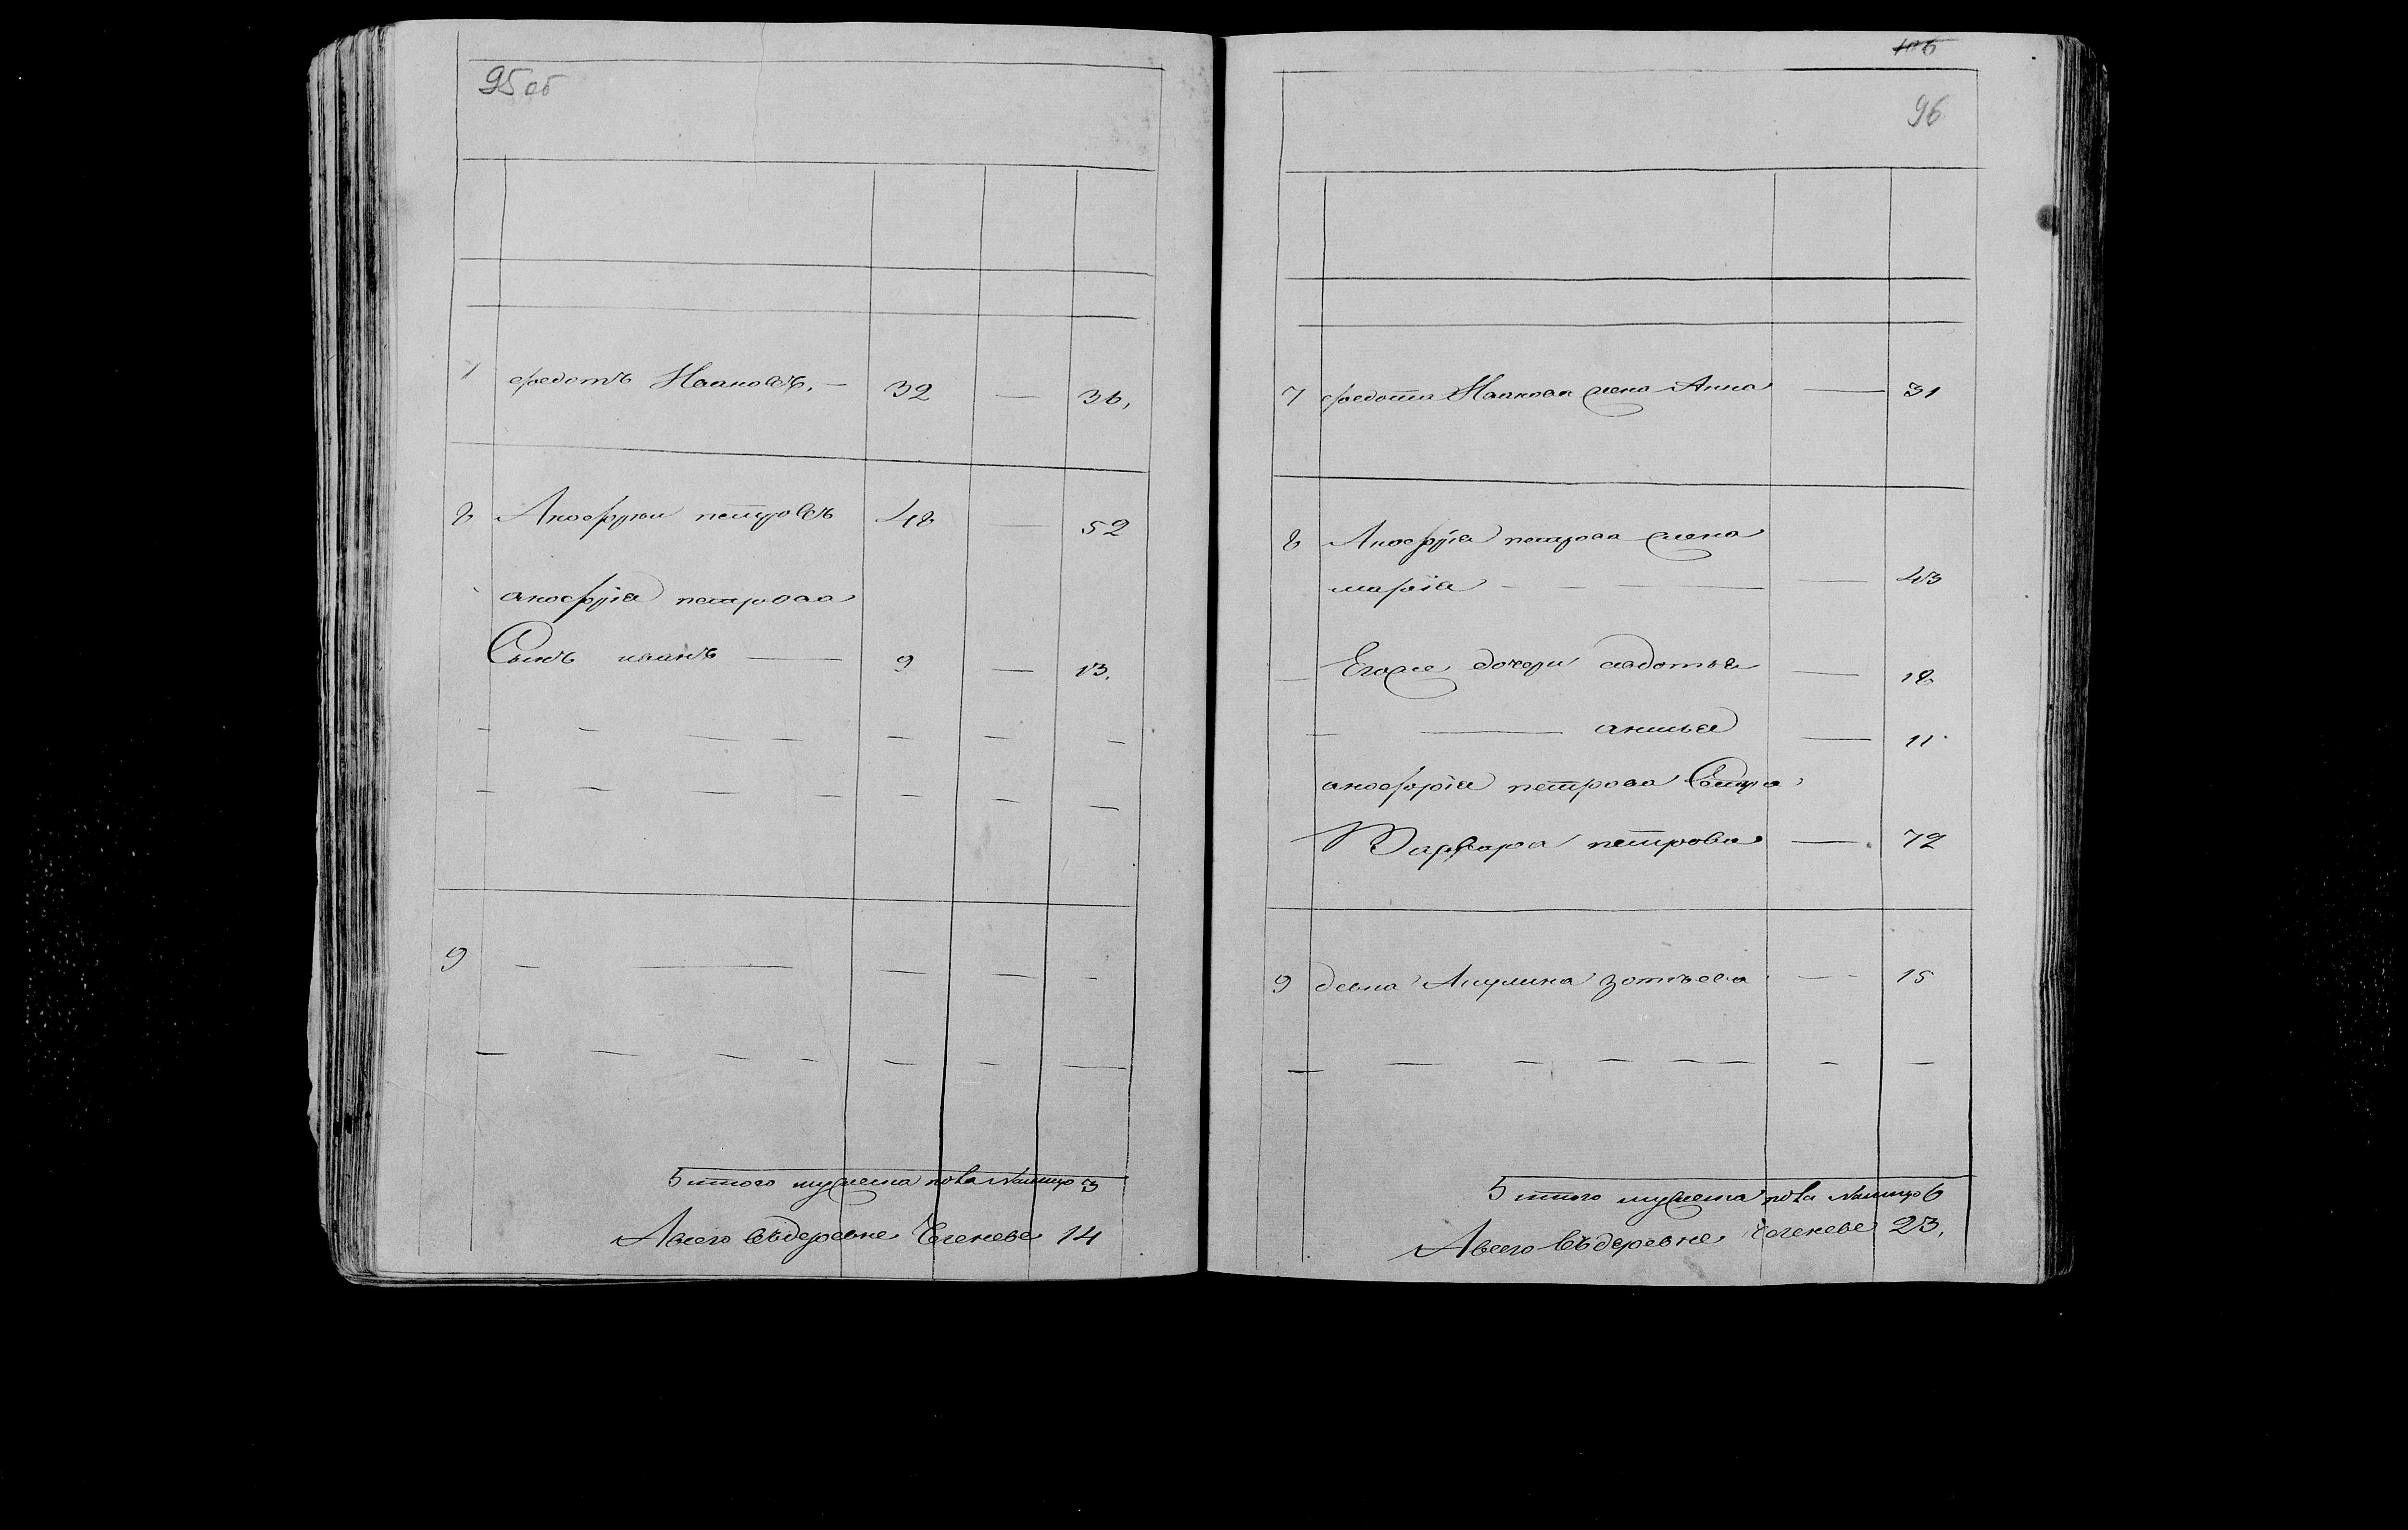 95 об
7 федотъ Ивановъ. — 32 — 36,
8 Аноефрїи петровъ 48 — 52
аноефрїа петрова
Сынъ иванъ — 9 — 13.
9
Итого мужеска пола Налицо 3
А всего въ деревне Чегеневе 14
106
96
7 федота Иванова жена Анна — 31
8 Аноефрїа петрова жена
марѳїа — 43
Его же дочери авдотья — 18
анисья — 11
аноефрїа петрова Сестра
Варвара петрова — 72
9 девка Акулина зотьева — 15
Итого женска пола Налицо 6
А всего въ деревне Чегеневе 23.